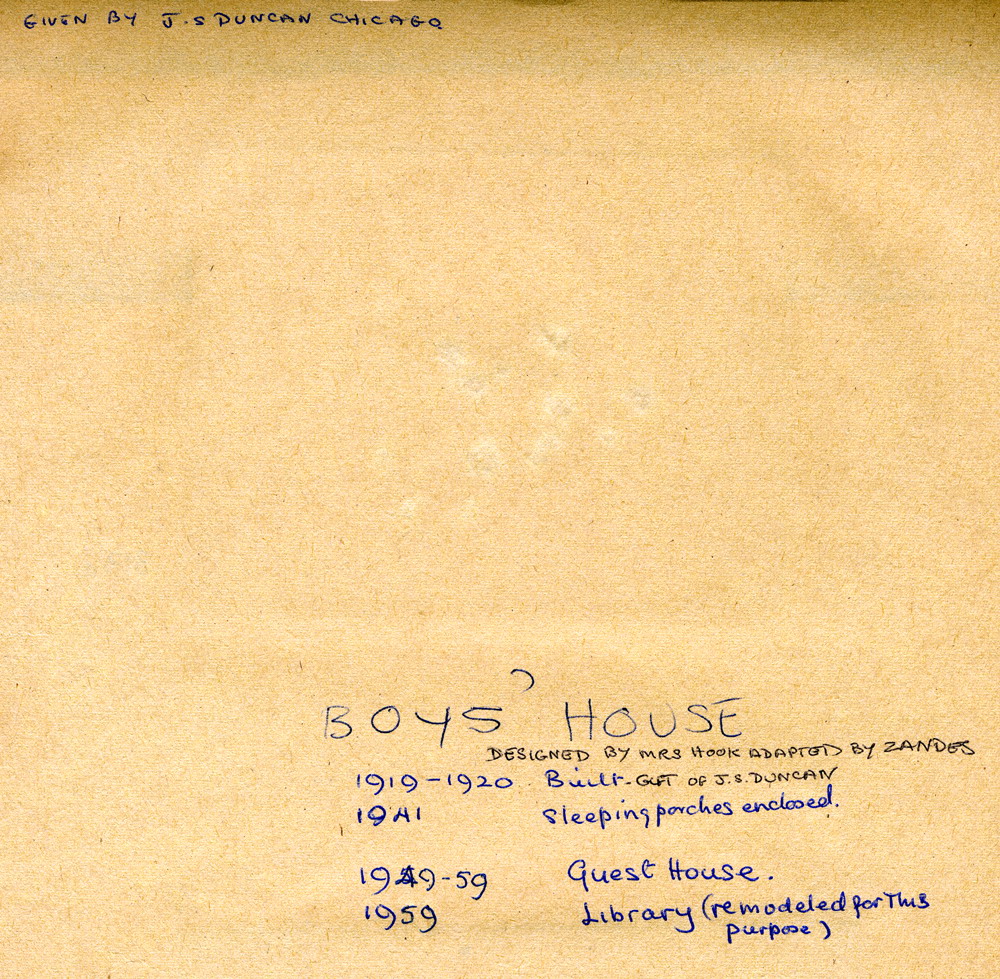 GIVEN BY J.S DUNCAN CHICAGO
BOYS' HOUSE
DESIGNED BY MRS HOOK ADAPTED BY ZANDES
1919-1920 Built-GIFT OF J.S.DUNCAN
1941 Sleeping porches enclosed.
1949-59 Guest House.
1959 Library (remodeled for This
purpose)